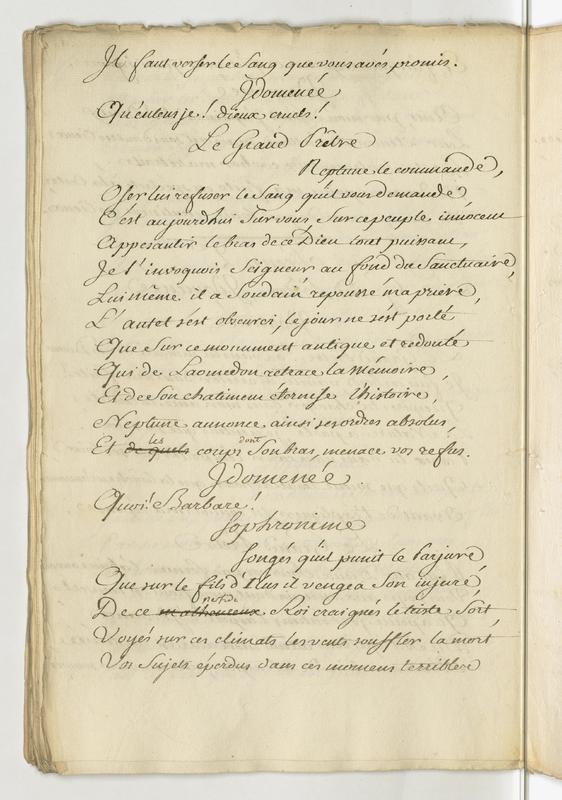 Il faut verser le Sang que vous avés promis.
Idomenée
Qu'entens je! dieux cruels!
Le Grand Prêtre
Neptune le commande,
Oser lui refuser le Sang qu'il vous demande,
C'est aujourdhui Sur vous, Sur ce peuple innocent
Appesantir le bras de ce Dieu tout puissant,
Je l'invoquois Seigneur au fond du Sanctuaire,
Lui même il a Soudain repoussé ma prière,
L'autel s'est obscurci, le jour ne s'est porté
Que Sur ce monument antique et redouté
Qui de Laomedon retrace la mémoire,
Et de Son chatiment éternise l'histoire,
Neptune annonce ainsi ses ordres absolus,
les dont
Et de quels coups Son bras, menace vos refus.
Idomenée
Quoi! Barbare!
Sophronime
Songés qu'il punit le Parjure
Que sur le fils d'Ilus il vengea Son injure,
perfide
De ce malheureux Roi craignés le triste Sort
Voyés sur ces climats les vents souffler la mort
Vos Sujets éperdus dans ces momens terribles